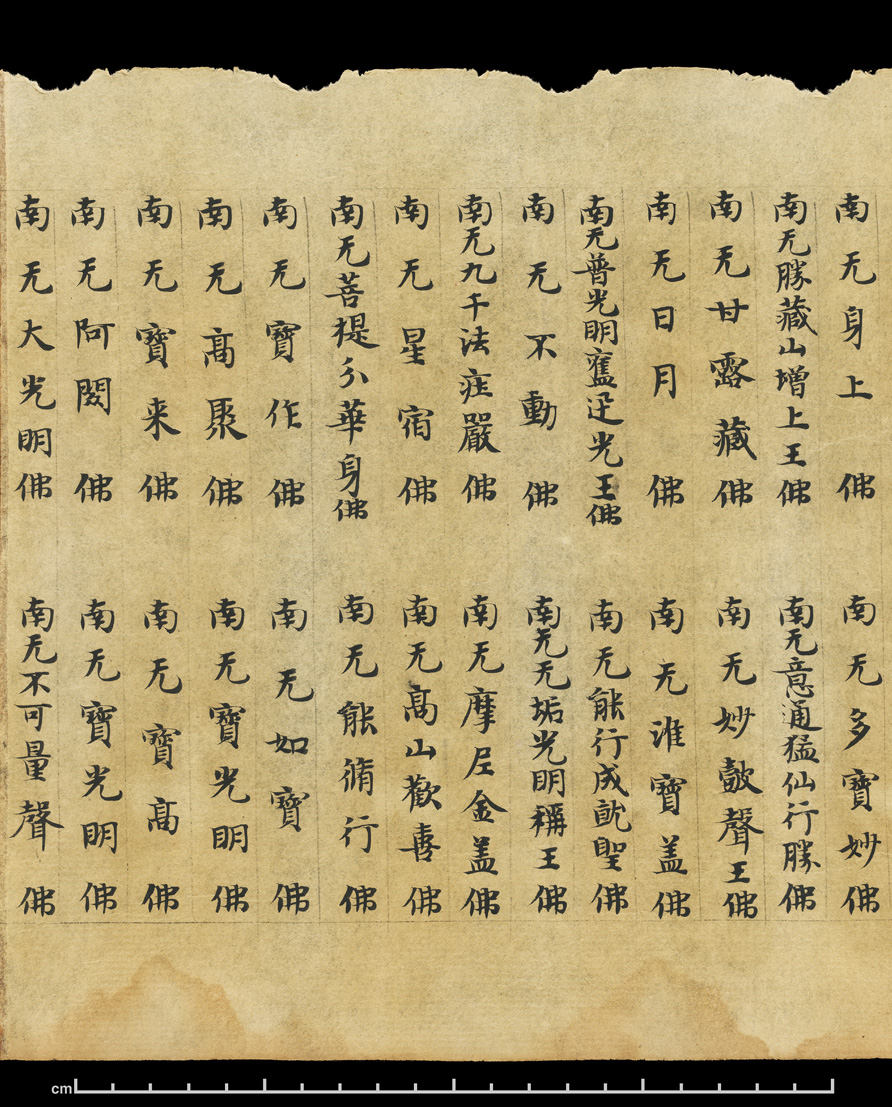 南无身上佛 南无多寶妙佛
南无勝藏山增上王佛 南无意通猛仙行勝佛
南无甘露藏佛 南无妙皷聲王佛
南无日月佛 南无淮寶盖佛
南无普光明奮迅光王佛 南无能行成就聖佛
南无不動佛 南无无垢光明稱王佛
南无九千法庄嚴佛 南无摩尼金盖佛
南无星宿佛 南无髙山歡喜佛
南无菩提分華身佛 南无能脩行佛
南无寶作佛 南无如寶佛
南无髙聚佛 南无寶光明佛
南无寶来佛 南无寶髙佛
南无阿閦佛 南无寶光明佛
南无大光明佛 南无不可量聲佛
cm